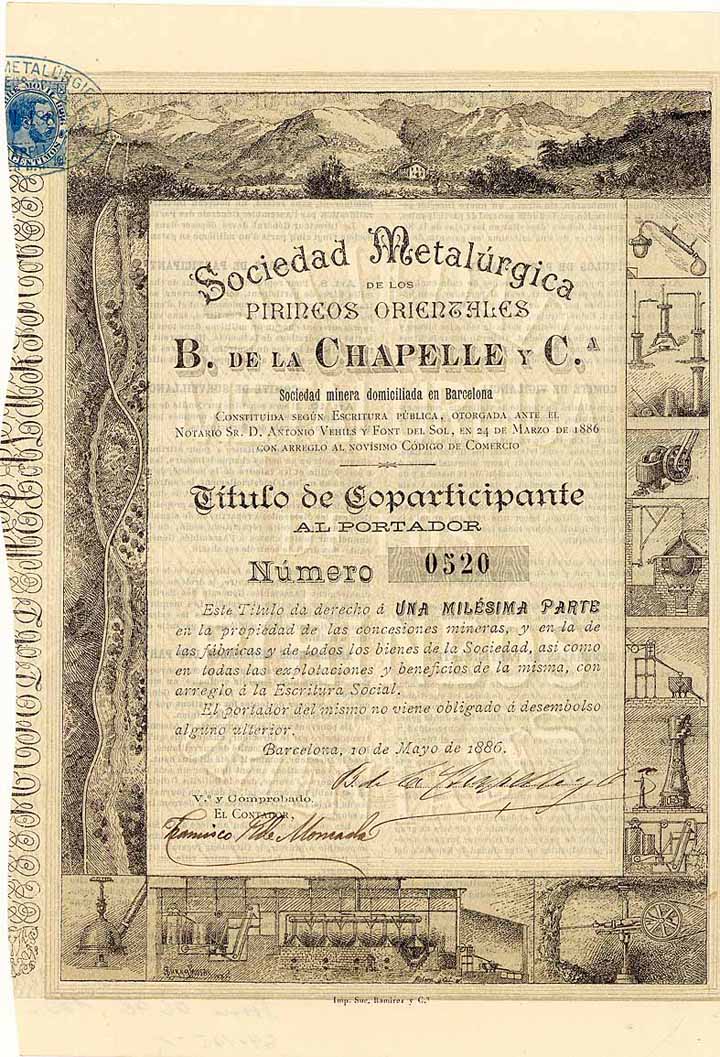 METALÚRGICA
MOVIL
CENTIMOS
Sociedad Metalúrgica
DE LOS
PIRINEOS ORIENTALES
B. DE LA CHAPELLE Y C.A
Sociedad minera domiciliada en Barcelona
CONSTITUÍDA SEGÚN ESCRITURA PÚBLICA, OTORGADA ANTE EL
NOTARIO SR. D. ANTONIO VEHILS Y FONT DEL SOL, EN 24 DE MARZO DE 1886
CON ARREGLO AL NOVÍSIMO CÓDIGO DE COMERCIO
Título de Coparticipante
AL PORTADOR
Número 0520
Este Título da derecho á UNA MILÉSIMA PARTE
en la propiedad de las concesiones mineras, y en la de
las fábricas y de todos los bienes de la Sociedad, asi como
en todas las explotaciones y beneficios de la misma, con
arreglo á la Escritura Social.
El portador del mismo no viene obligado á desembolso
alguno ulterior.
Barcelona, 10 de Mayo de 1886.
B. de la Chapelle y C
V.o y Comprobado.
EL CONTADOR,
Francisco Moncada
Imp. Suc. Ramirez y C.a